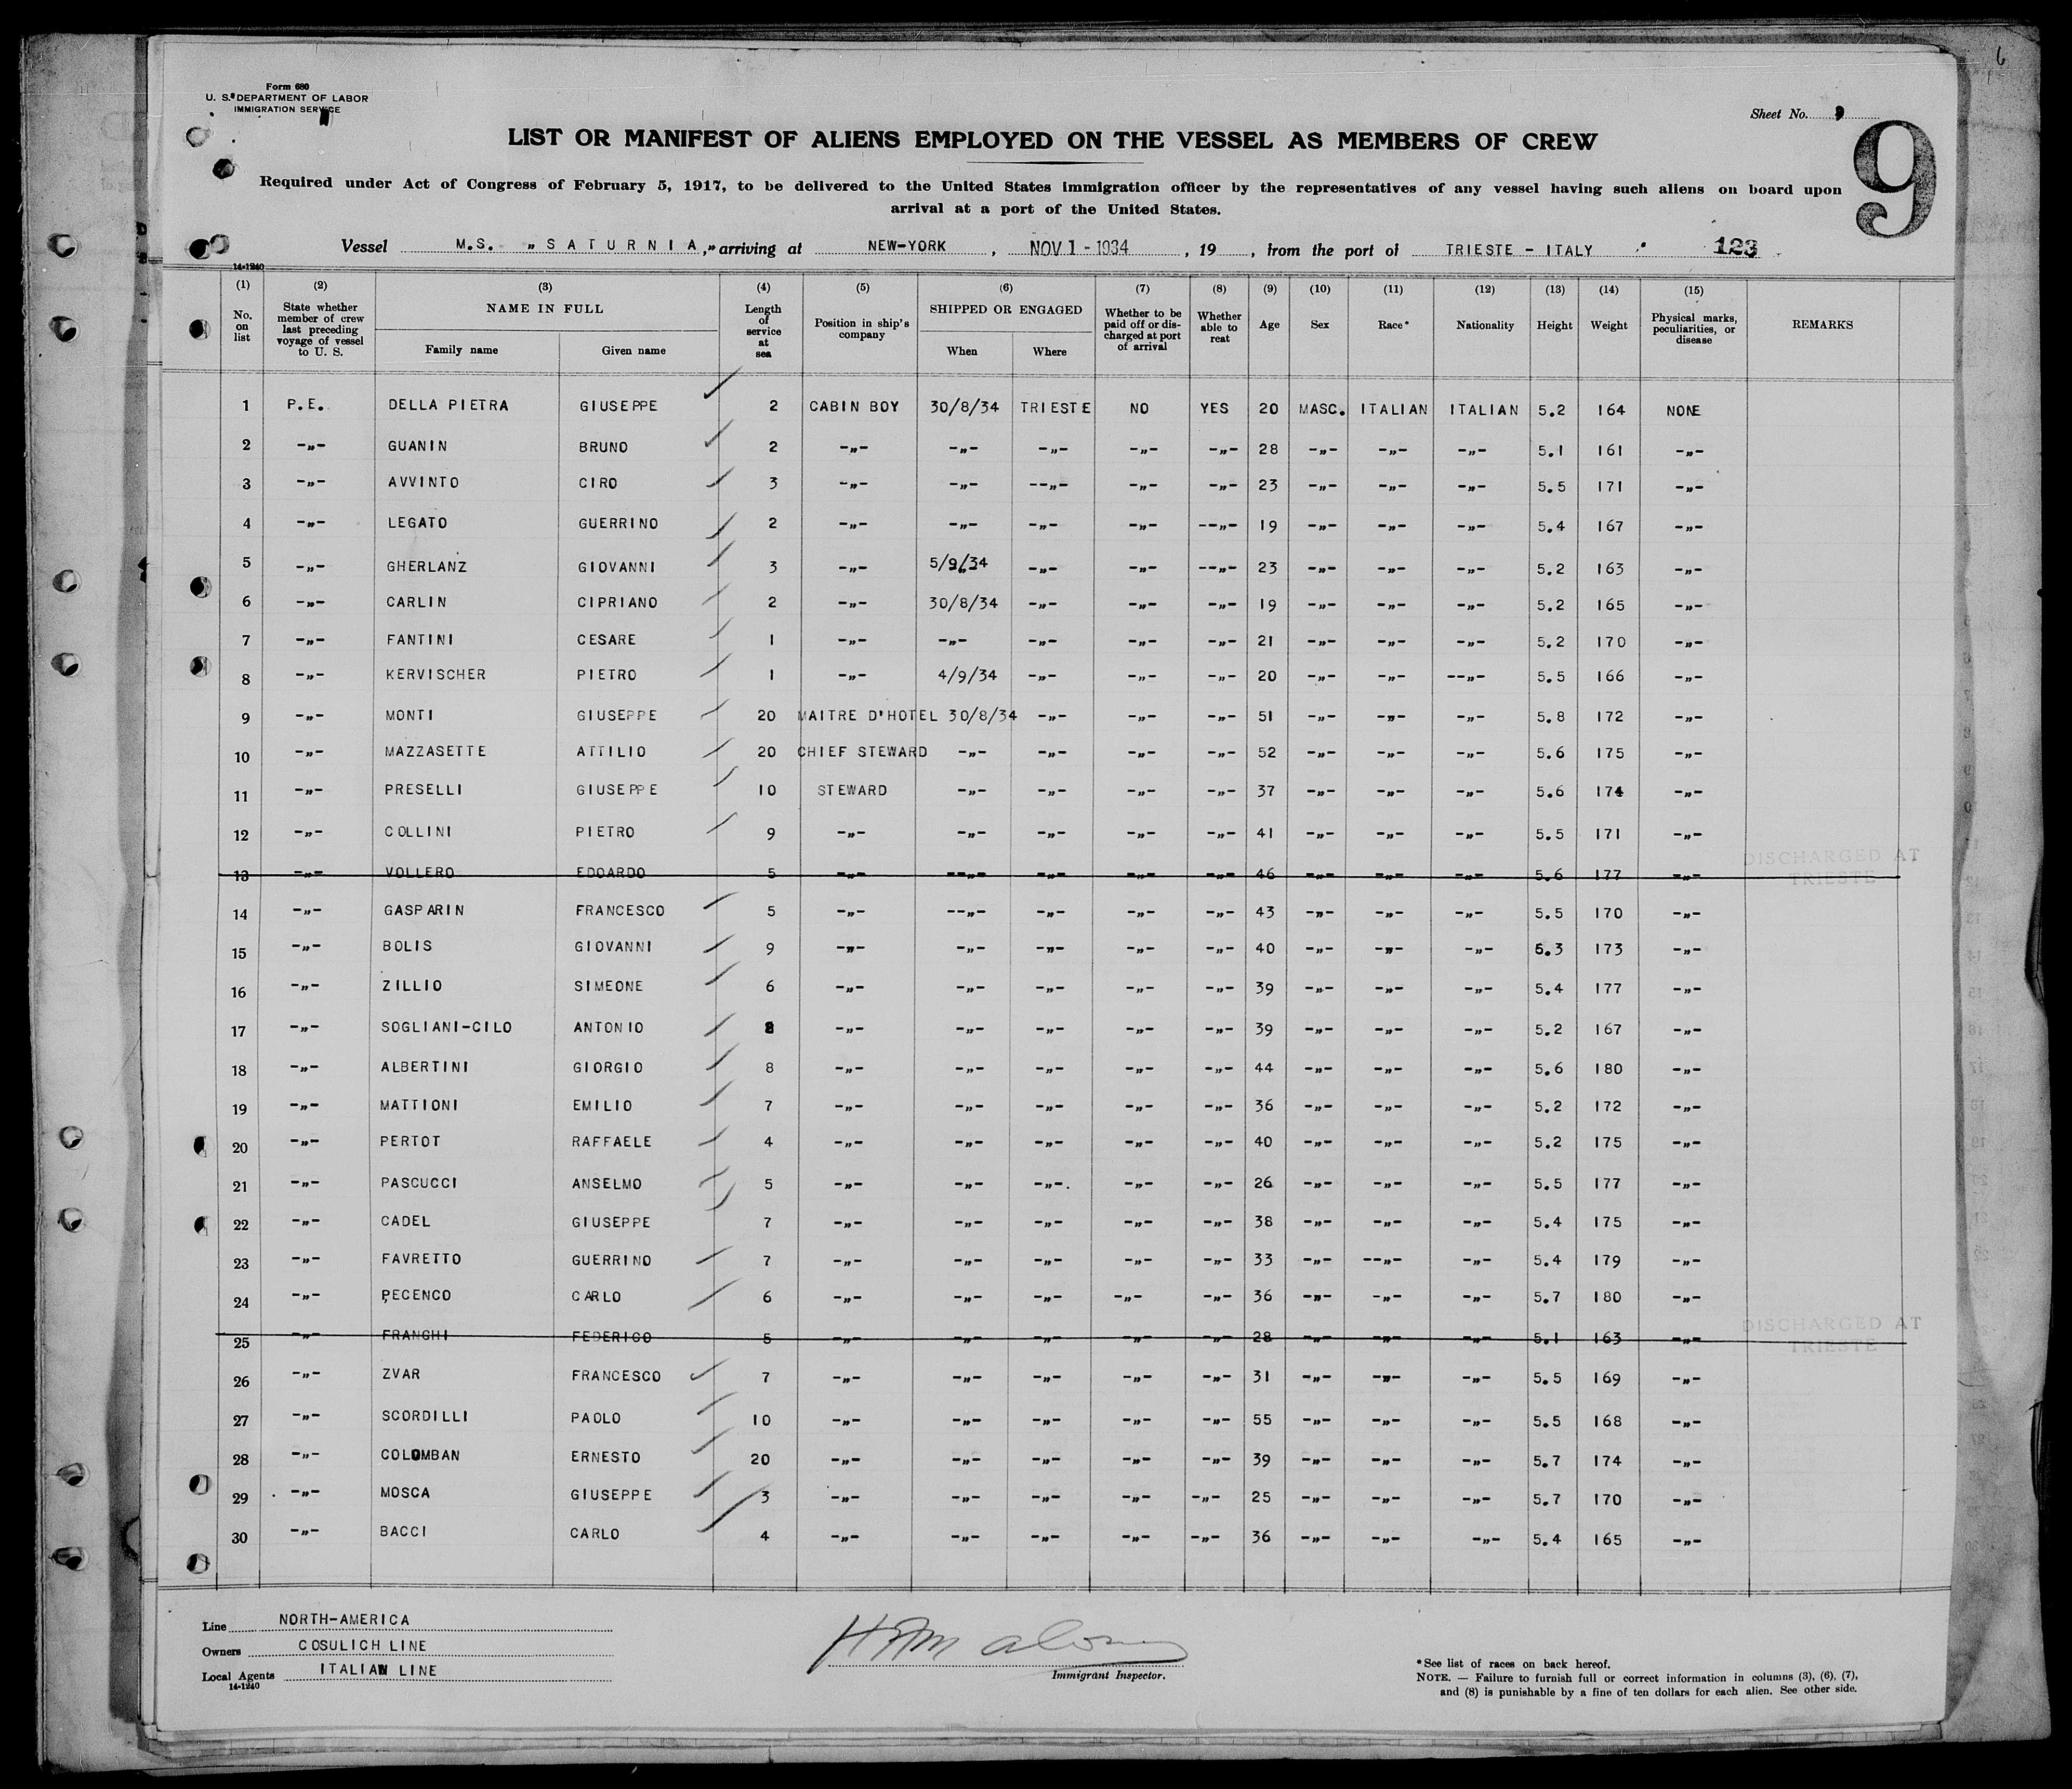 6
Form 680
U. S. DEPARTMENT OF LABOR
IMMIGRATION SERVICE
Sheet No. 9
9
LIST OR MANIFEST OF ALIENS EMPLOYED ON THE VESSEL AS MEMBERS OF CREW
Required under Act of Congress of February 5, 1917, to be delivered to the United States immigration officer by the representatives of any vessel having such aliens on board upon
arrival at a port of the United States.
Vessel M.S. „SATURNIA„ arriving at NEW-YORK, NOV 1 - 1934, 19 , from the port of TRIESTE - ITALY 123
14-1240
(1) No. on list (2) State whether member of crew last preceding voyage of vessel to U. S. (3) NAME IN FULL Family name Given name (4) Length of service at sea (5) Position in ship's company (6) SHIPPED OR ENGAGED When Where (7) Whether to be paid off or discharged at port of arrival (8) Whether able to reat (9) Age (10) Sex (11) Race* (12) Nationality (13) Height (14) Weight (15) Physical marks, peculiarities, or disease REMARKS
1 P.E. DELLA PIETRA GIUSEPPE 2 CABIN BOY 30/8/34 TRIESTE NO YES 20 MASC. ITALIAN ITALIAN 5.2 164 NONE
2 -„- GUANIN BRUNO 2 -„- -„- -„- -„- -„- 28 -„- -„- -„- 5.1 161 -„-
3 -„- AVVINTO CIRO 3 -„- -„- --„- -„- -„- 23 -„- -„- -„- 5.5 171 -„-
4 -„- LEGATO GUERRINO 2 -„- -„- -„- -„- --„- 19 -„- -„- -„- 5.4 167 -„-
5 -„- GHERLANZ GIOVANNI 3 -„- 5/9/34 -„- -„- --„- 23 -„- -„- -„- 5.2 163 -„-
6 -„- CARLIN CIPRIANO 2 -„- 30/8/34 -„- -„- -„- 19 -„- -„- -„- 5.2 165 -„-
7 -„- FANTINI CESARE 1 -„- -„- -„- -„- -„- 21 -„- -„- -„- 5.2 170 -„-
8 -„- KERVISCHER PIETRO 1 -„- 4/9/34 -„- -„- -„- 20 -„- -„- --„- 5.5 166 -„-
9 -„- MONTI GIUSEPPE 20 MAITRE D'HOTEL 30/8/34 -„- -„- -„- 51 -„- -„- -„- 5.8 172 -„-
10 -„- MAZZASETTE ATTILIO 20 CHIEF STEWARD -„- -„- -„- -„- 52 -„- -„- -„- 5.6 175 -„-
11 -„- PRESELLI GIUSEPPE 10 STEWARD -„- -„- -„- -„- 37 -„- -„- -„- 5.6 174 -„-
12 -„- COLLINI PIETRO 9 -„- -„- -„- -„- -„- 41 -„- -„- -„- 5.5 171 -„-
13 -„- VOLLERO EDOARDO 5 -„- --„- -„- -„- -„- 46 -„- -„- -„- 5.6 177 -„- DISCHARGED AT TRIESTE
14 -„- GASPARIN FRANCESCO 5 -„- --„- -„- -„- -„- 43 -„- -„- -„- 5.5 170 -„-
15 -„- BOLIS GIOVANNI 9 -„- -„- -„- -„- -„- 40 -„- -„- -„- 5.3 173 -„-
16 -„- ZILLIO SIMEONE 6 -„- -„- -„- -„- -„- 39 -„- -„- -„- 5.4 177 -„-
17 -„- SOGLIANI-CILO ANTONIO 8 -„- -„- -„- -„- -„- 39 -„- -„- -„- 5.2 167 -„-
18 -„- ALBERTINI GIORGIO 8 -„- -„- -„- -„- -„- 44 -„- -„- -„- 5.6 180 -„-
19 -„- MATTIONI EMILIO 7 -„- -„- -„- -„- -„- 36 -„- -„- -„- 5.2 172 -„-
20 -„- PERTOT RAFFAELE 4 -„- -„- -„- -„- -„- 40 -„- -„- -„- 5.2 175 -„-
21 -„- PASCUCCI ANSELMO 5 -„- -„- -„-. -„- -„- 26 -„- -„- -„- 5.5 177 -„-
22 -„- CADEL GIUSEPPE 7 -„- -„- -„- -„- -„- 38 -„- -„- -„- 5.4 175 -„-
23 -„- FAVRETTO GUERRINO 7 -„- -„- -„- -„- -„- 33 -„- --„- -„- 5.4 179 -„-
24 -„- PECENCO CARLO 6 -„- -„- -„- -„- -„- 36 -„- -„- -„- 5.7 180 -„-
25 -„- FRANCHI FEDERICO 5 -„- -„- -„- -„- -„- 28 -„- -„- -„- 5.1 163 -„- DISCHARGED AT TRIESTE
26 -„- ZVAR FRANCESCO 7 -„- -„- -„- -„- -„- 31 -„- -„- -„- 5.5 169 -„-
27 -„- SCORDILLI PAOLO 10 -„- -„- -„- -„- -„- 55 -„- -„- -„- 5.5 168 -„-
28 -„- COLOMBAN ERNESTO 20 -„- -„- -„- -„- -„- 39 -„- -„- -„- 5.7 174 -„-
29 -„- MOSCA GIUSEPPE 3 -„- -„- -„- -„- -„- 25 -„- -„- -„- 5.7 170 -„-
30 -„- BACCI CARLO 4 -„- -„- -„- -„- -„- 36 -„- -„- -„- 5.4 165 -„-
Line NORTH-AMERICA
Owners COSULICH LINE
Local Agents ITALIAN LINE
14-1240
Immigrant Inspector.
*See list of races on back hereof.
NOTE. — Failure to furnish full or correct information in columns (3), (6), (7),
and (8) is punishable by a fine of ten dollars for each alien. See other side.